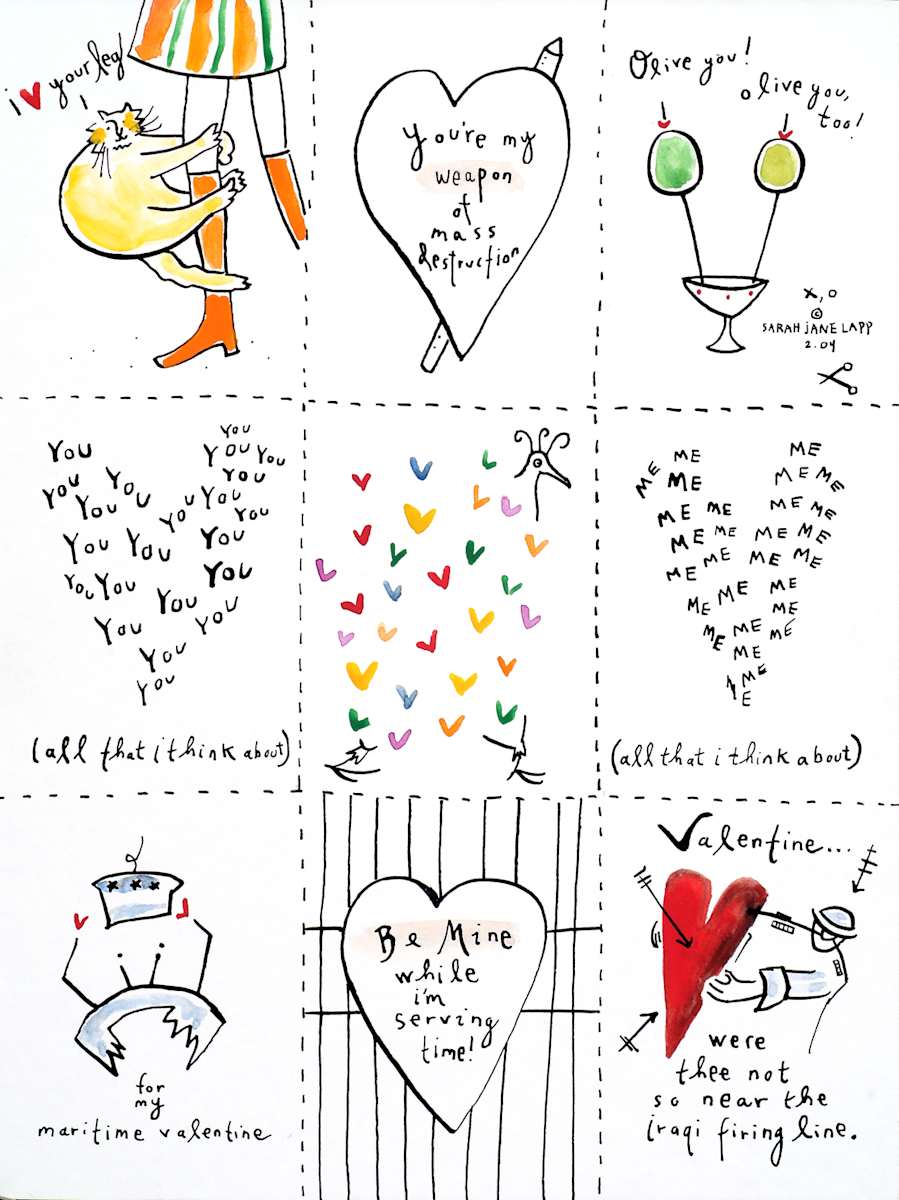 i ♥ your leg!
You're my
weapon
of
mass
destruction
Olive you!
olive you,
too!
x, o
©
SARAH JANE LAPP
2.04
YOU
YOU YOU YOU
YOU YOU YOU
YOU YOU YOU YOU
YOU YOU YOU
YOU YOU YOU
YOU
YOU YOU
YOU
YOU
(all that i think about)
ME ME
ME ME ME ME
ME ME ME ME
ME ME ME ME
ME ME ME ME
ME ME ME
ME
ME ME ME
ME
ME
ME
(all that i think about)
for
my
maritime valentine
Be Mine
while
i'm
serving
time!
Valentine...
were
thee not
so near the
iraqi firing line.